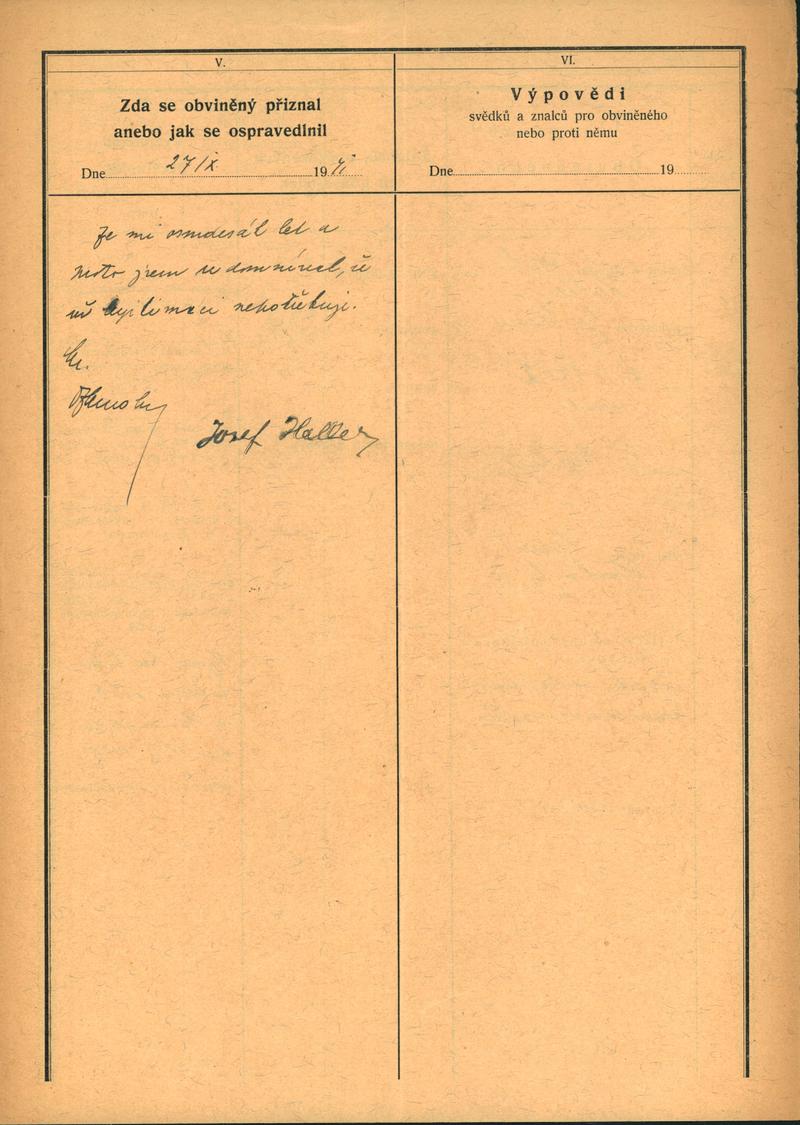 V.
Zda se obviněný přiznal
anebo jak se ospravedlnil
Dne 27/X. 1941
Je mi osmdesát let a
proto jsem se domníval, že
už legitimaci nepotřebuji.
Josef Haller
VI.
Výpovědi
svědků a znalců pro obviněného
nebo proti němu
Dne 19